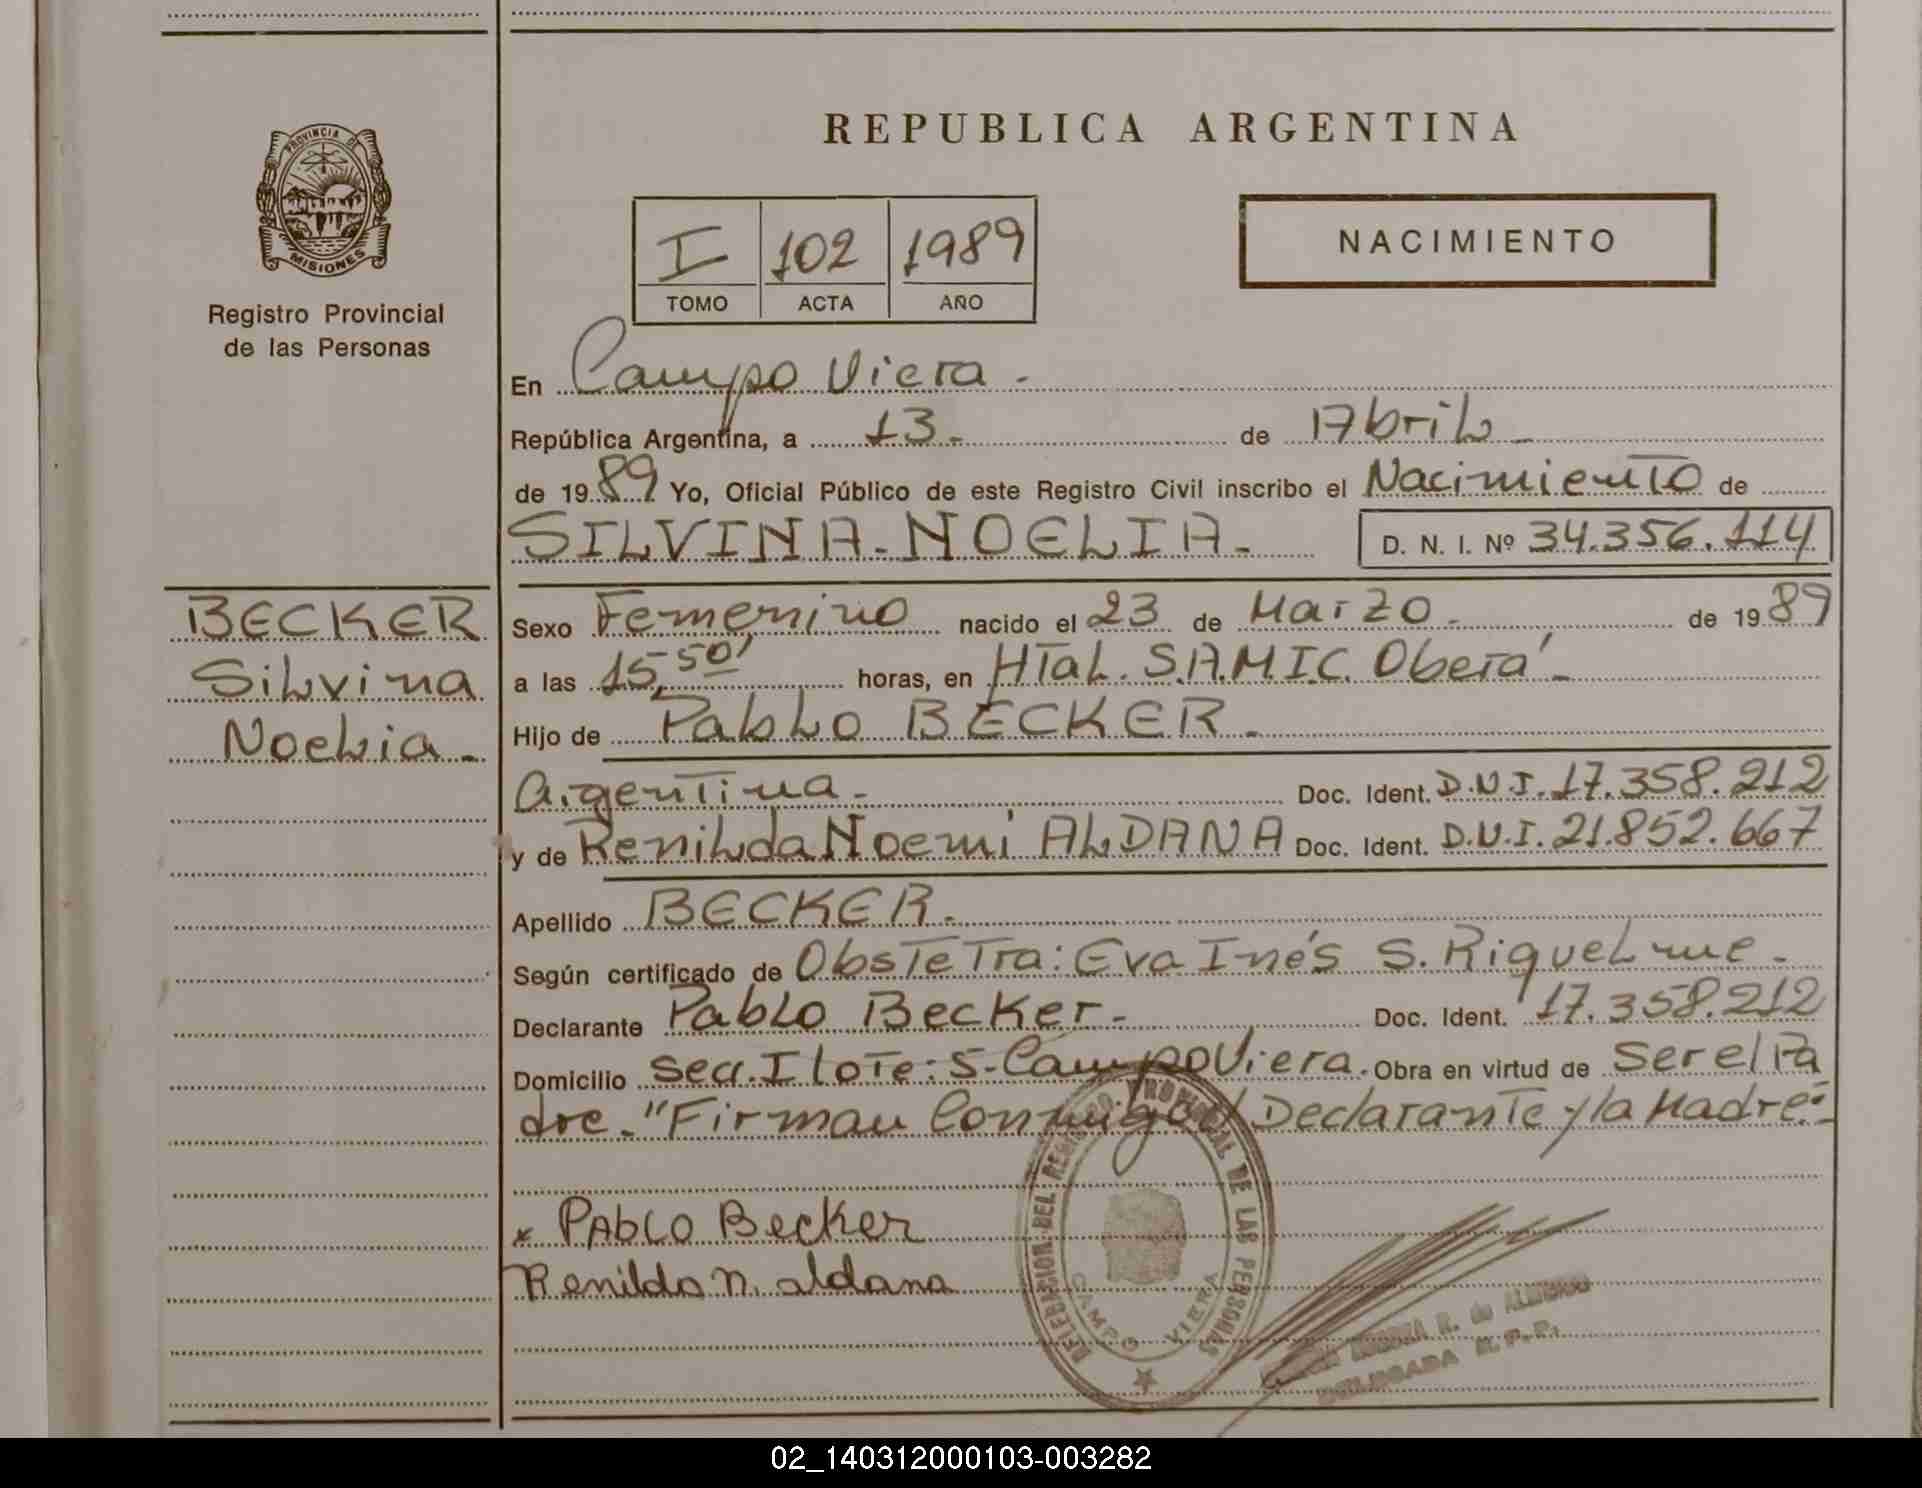 REPUBLICA ARGENTINA
PROVINCIA DE
MISIONES
Registro Provincial
de las Personas
I 102 1989
TOMO ACTA AÑO
NACIMIENTO
En Campo Viera -
República Argentina, a 13 - de Abril -
de 1989 Yo, Oficial Público de este Registro Civil inscribo el Nacimiento de
SILVINA - NOELIA - D. N. I. Nº 34.356.114
BECKER
Silvina
Noelia -
Sexo Femenino nacido el 23 de Marzo - de 1989
a las 15,50' horas, en Htal. S.A.M.I.C. Oberá -
Hijo de Pablo BECKER -
Argentina - Doc. Ident. D.N.I. 17.358.212
y de Renilda Noemi ALDANA Doc. Ident. D.N.I. 21.852.667
Apellido BECKER -
Según certificado de Obstetra: Eva Inés S. Riquelme -
Declarante Pablo Becker - Doc. Ident. 17.358.212
Domicilio Secc. I lote: 5 - Campo Viera. Obra en virtud de Ser el Pa
dre - "Firman Conmigo el Declarante y la Madre" -
x PAbLO Becker
Renilda N. aldana
DELEGACION DEL REGISTRO PROVINCIAL DE LAS PERSONAS
CAMPO VIERA
R. de ALMIRON
DELEGADA R.P.P.
02_140312000103-003282